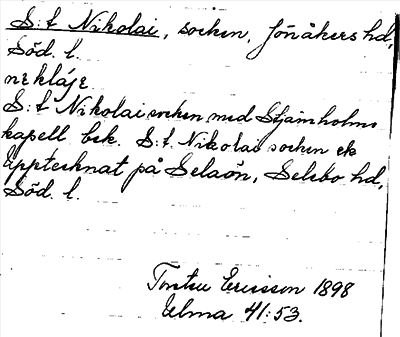 S:t Nikolai, socken, Jönåkers hd,
Söd. l.
nekláje
S:t Nikolai socken med Stjärnholms
kapell bsk. S:t. Nikolai socken ek
Upptecknat på Selaön, Selebo hd,
Söd. l.
Torsten Ericsson 1898
Ulma 41:53.